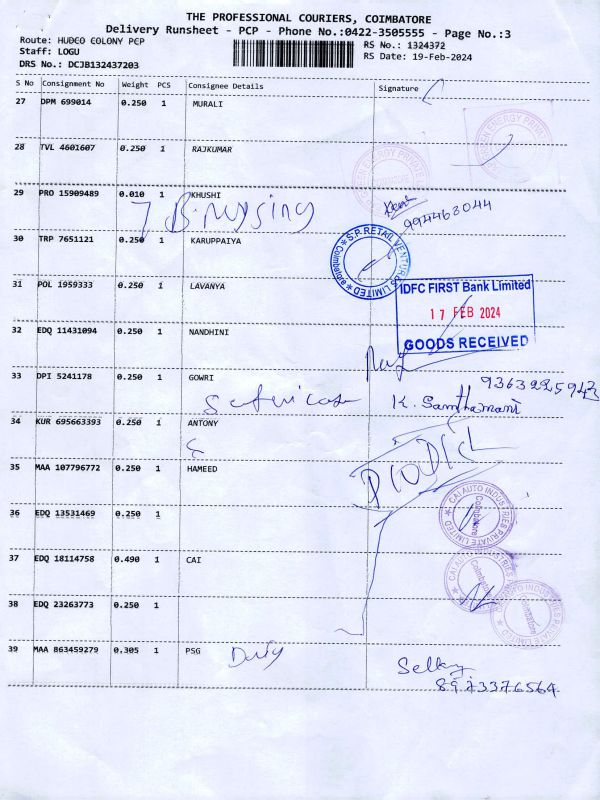 THE PROFESSIONAL COURIERS, COIMBATORE
Delivery Runsheet - PCP - Phone No.:0422-3505555 - Page No.:3
Route: HUDCO COLONY PCP
RS No.: 1324372
Staff: LOGU
RS Date: 19-Feb-2024
DRS No.: DCJB132437203
S No Consignment No Weight PCS Consignee Details Signature
27 DPM 699014 0.250 1 MURALI
28 TVL 4601607 0.250 1 RAJKUMAR
29 PRO 15909489 0.010 1 KHUSHI
994463044
30 TRP 7651121 0.250 1 KARUPPAIYA
S.P. RETAIL VENTURES LIMITED
Coimbatore
31 POL 1959333 0.250 1 LAVANYA
IDFC FIRST Bank Limited
17 FEB 2024
32 EDQ 11431094 0.250 1 NANDHINI
GOODS RECEIVED
33 DPI 5241178 0.250 1 GOWRI
9363225943
K. Santhamani
34 KUR 695663393 0.250 1 ANTONY
35 MAA 107796772 0.250 1 HAMEED
36 EDQ 13531469 0.250 1
CAI AUTO INDUSTRIES PRIVATE LIMITED
Coimbatore
37 EDQ 18114758 0.490 1 CAI
38 EDQ 23263773 0.250 1
39 MAA 863459279 0.305 1 PSG
8923376564